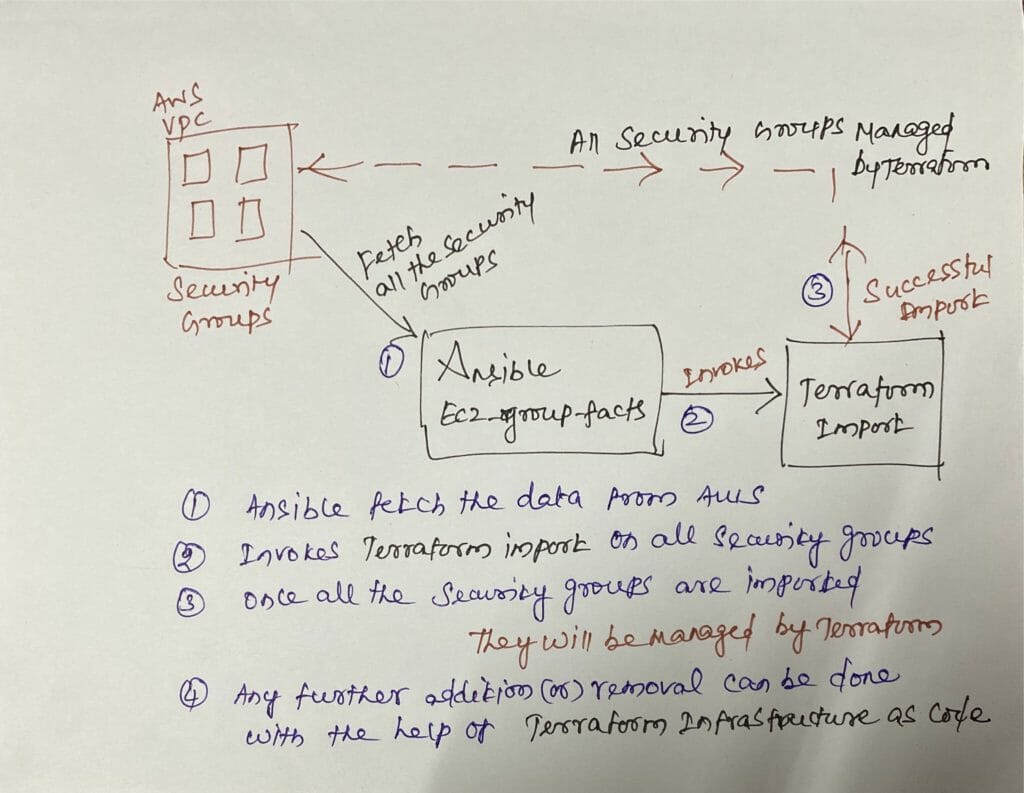 AWS
VPC
All Security Groups Managed
by Terraform
Fetch
all the security
Groups
Security
Groups
③
Successful
Import
①
Ansible
Ec2-group-facts
Invokes
②
Terraform
Import
① Ansible fetch the data from AWS
② Invokes Terraform import on all security groups
③ Once all the Security groups are imported
They will be managed by Terraform
④ Any further addition (or) removal can be done
with the help of Terraform Infrastructure as code